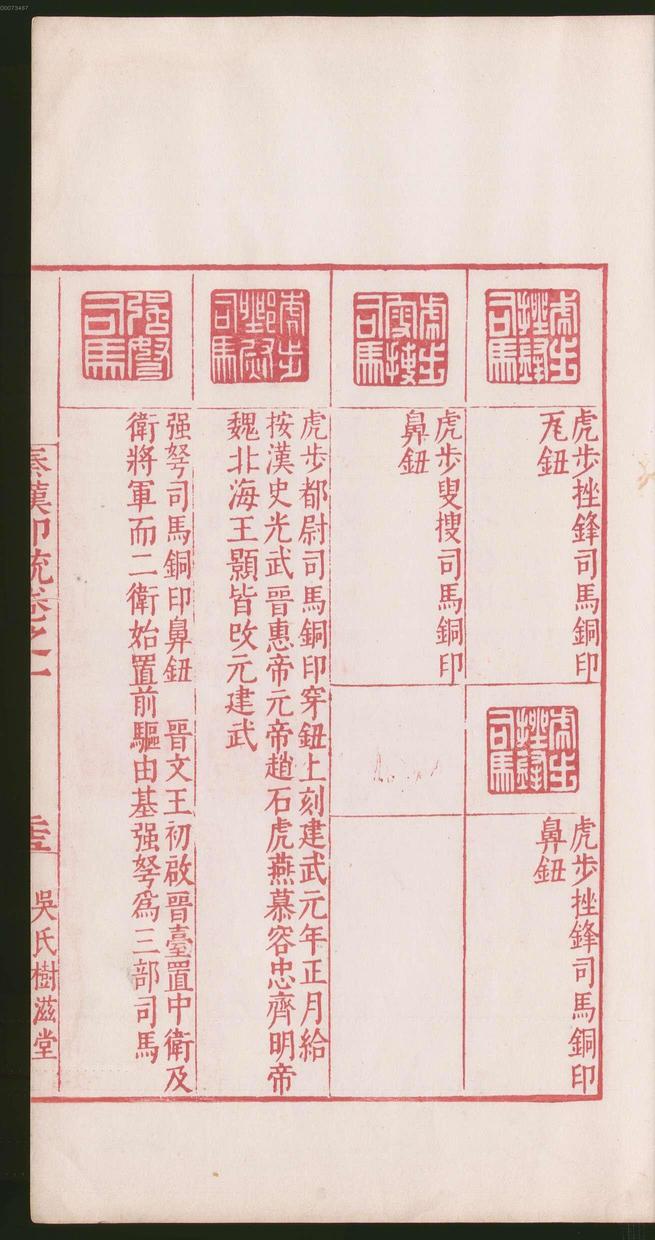 虎步
挫鋒
司馬
虎步挫鋒司馬銅印
瓦鈕
虎步
挫鋒
司馬
虎步挫鋒司馬銅印
鼻鈕
虎步
叟搜
司馬
虎步叟搜司馬銅印
鼻鈕
虎步
都尉
司馬
虎步都尉司馬銅印穿鈕上刻建武元年正月給
按漢史光武晉惠帝元帝趙石虎燕慕容忠齊明帝
魏北海王顥皆攺元建武
强弩
司馬
强弩司馬銅印鼻鈕　晉文王初啟晉臺置中衛及
衛將軍而二衛始置前驅由基强弩爲三部司馬
秦漢印統卷之一
吳氏樹滋堂